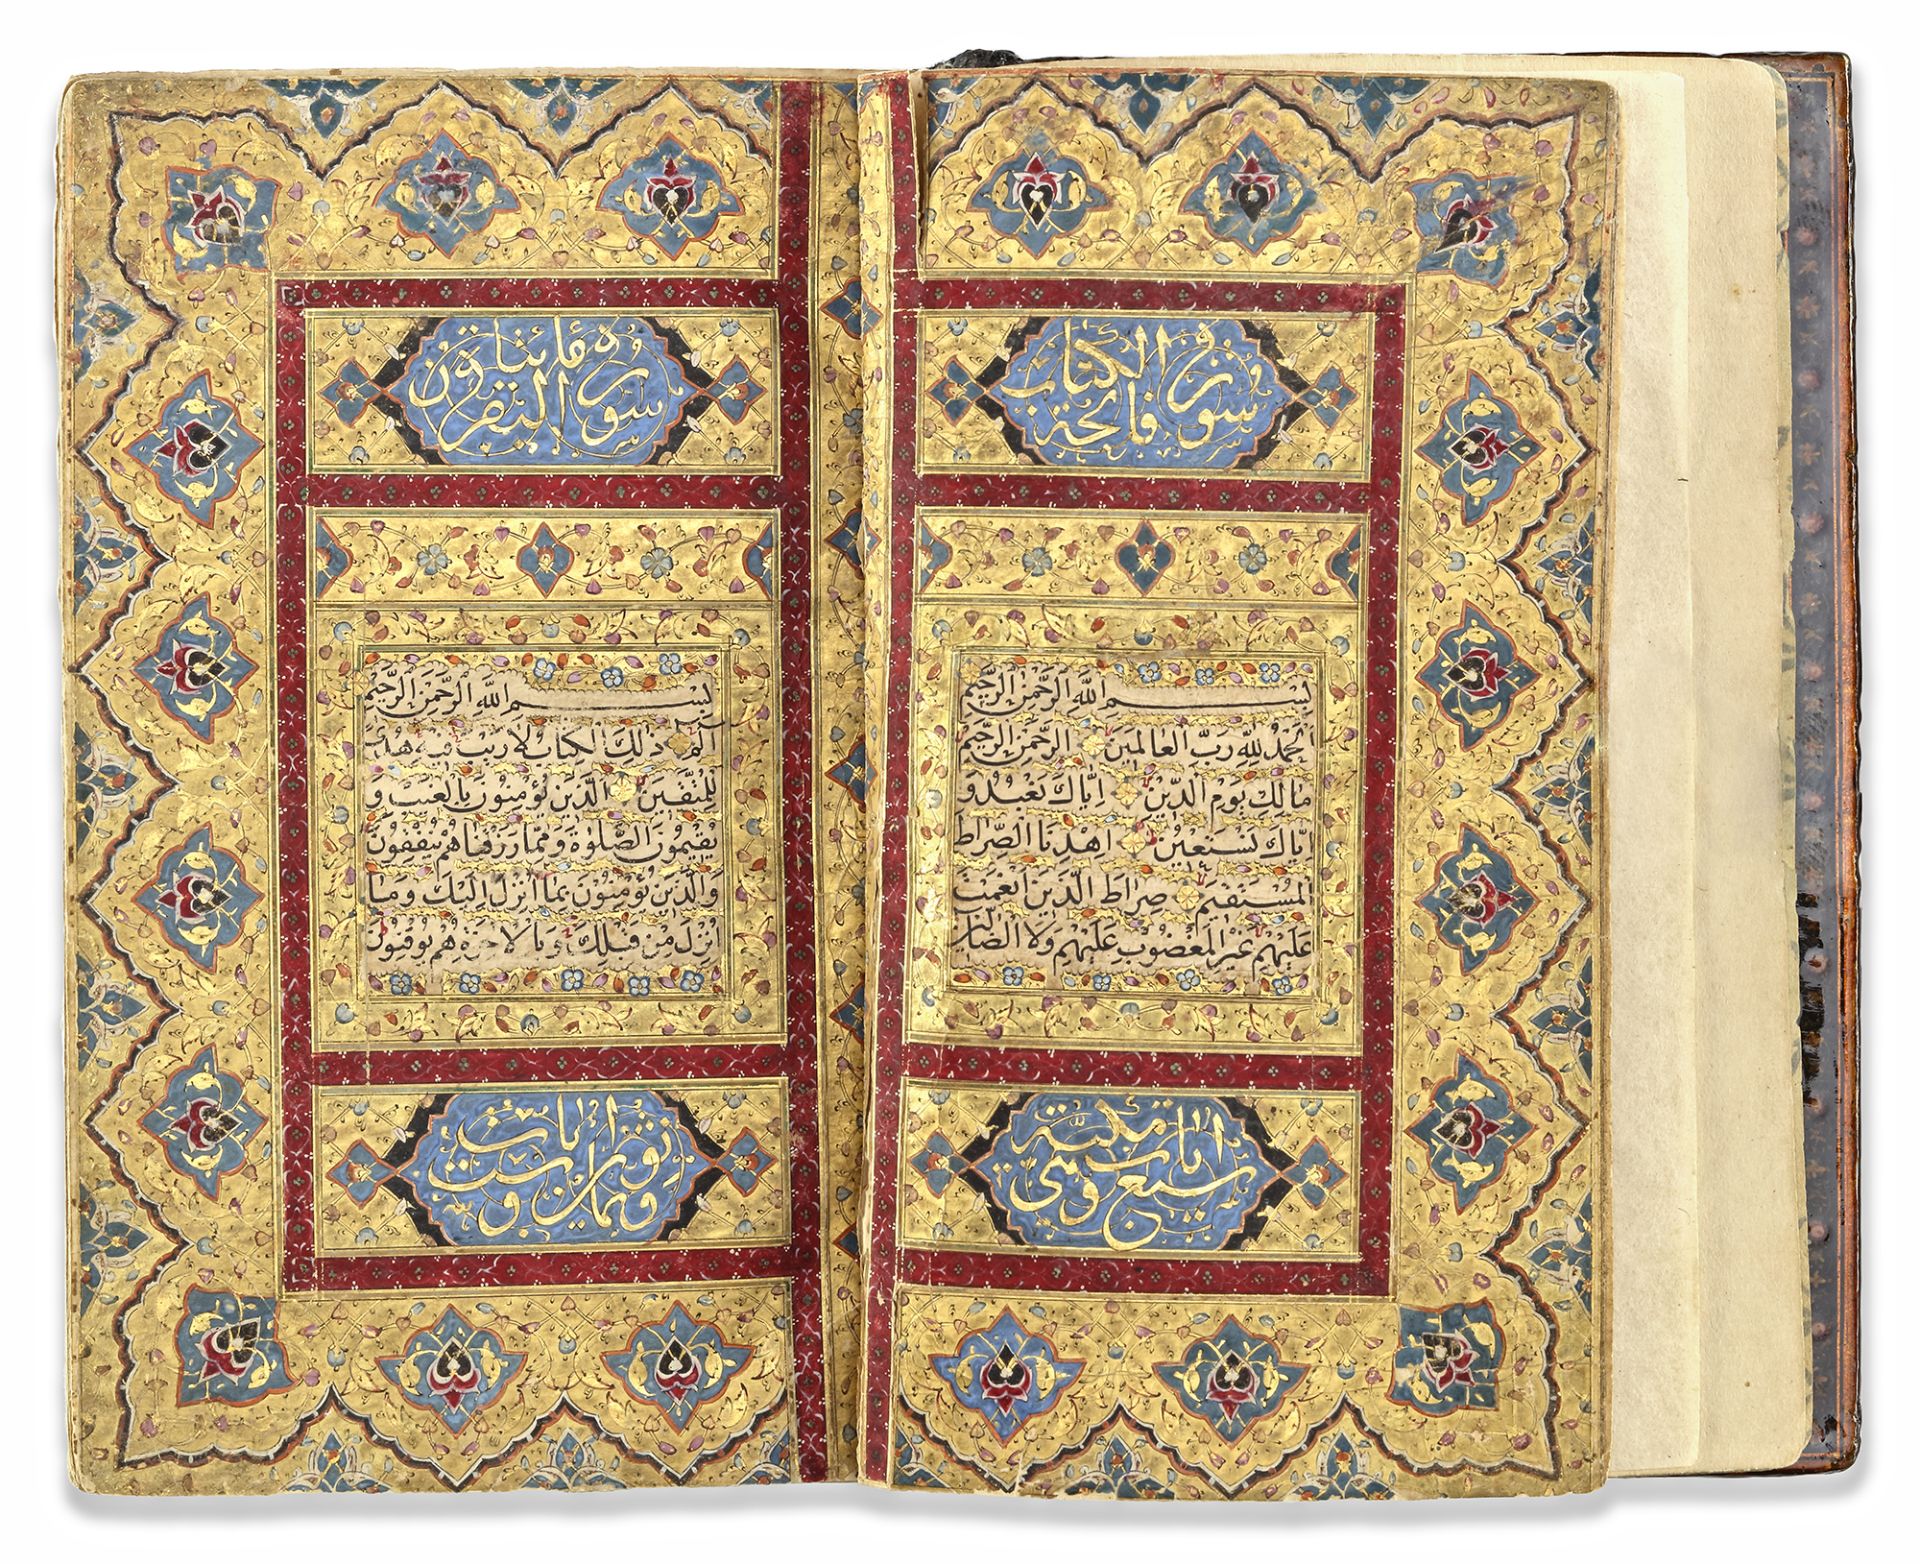 سورة فاتحة الكتاب
بِسْمِ اللهِ الرَّحْمٰنِ الرَّحِيمِ
الْحَمْدُ لِلّٰهِ رَبِّ الْعَالَمِينَ الرَّحْمٰنِ الرَّحِيمِ
مَالِكِ يَوْمِ الدِّينِ اِيَّاكَ نَعْبُدُ وَ
اِيَّاكَ نَسْتَعِينُ اِهْدِنَا الصِّرَاطَ
الْمُسْتَقِيمَ صِرَاطَ الَّذِينَ اَنْعَمْتَ
عَلَيْهِمْ غَيْرِ الْمَغْضُوبِ عَلَيْهِمْ وَلَا الضَّالِّينَ
وهي سبع ايات مكية
سورة البقرة مائتان
بِسْمِ اللهِ الرَّحْمٰنِ الرَّحِيمِ
الم ذٰلِكَ الْكِتَابُ لَا رَيْبَ فِيهِ هُدًى
لِلْمُتَّقِينَ الَّذِينَ يُؤْمِنُونَ بِالْغَيْبِ وَ
يُقِيمُونَ الصَّلٰوةَ وَمِمَّا رَزَقْنَاهُمْ يُنْفِقُونَ
وَالَّذِينَ يُؤْمِنُونَ بِمَا اُنْزِلَ اِلَيْكَ وَمَا
اُنْزِلَ مِنْ قَبْلِكَ وَبِالْاٰخِرَةِ هُمْ يُوقِنُونَ
وثمانون وست ايات